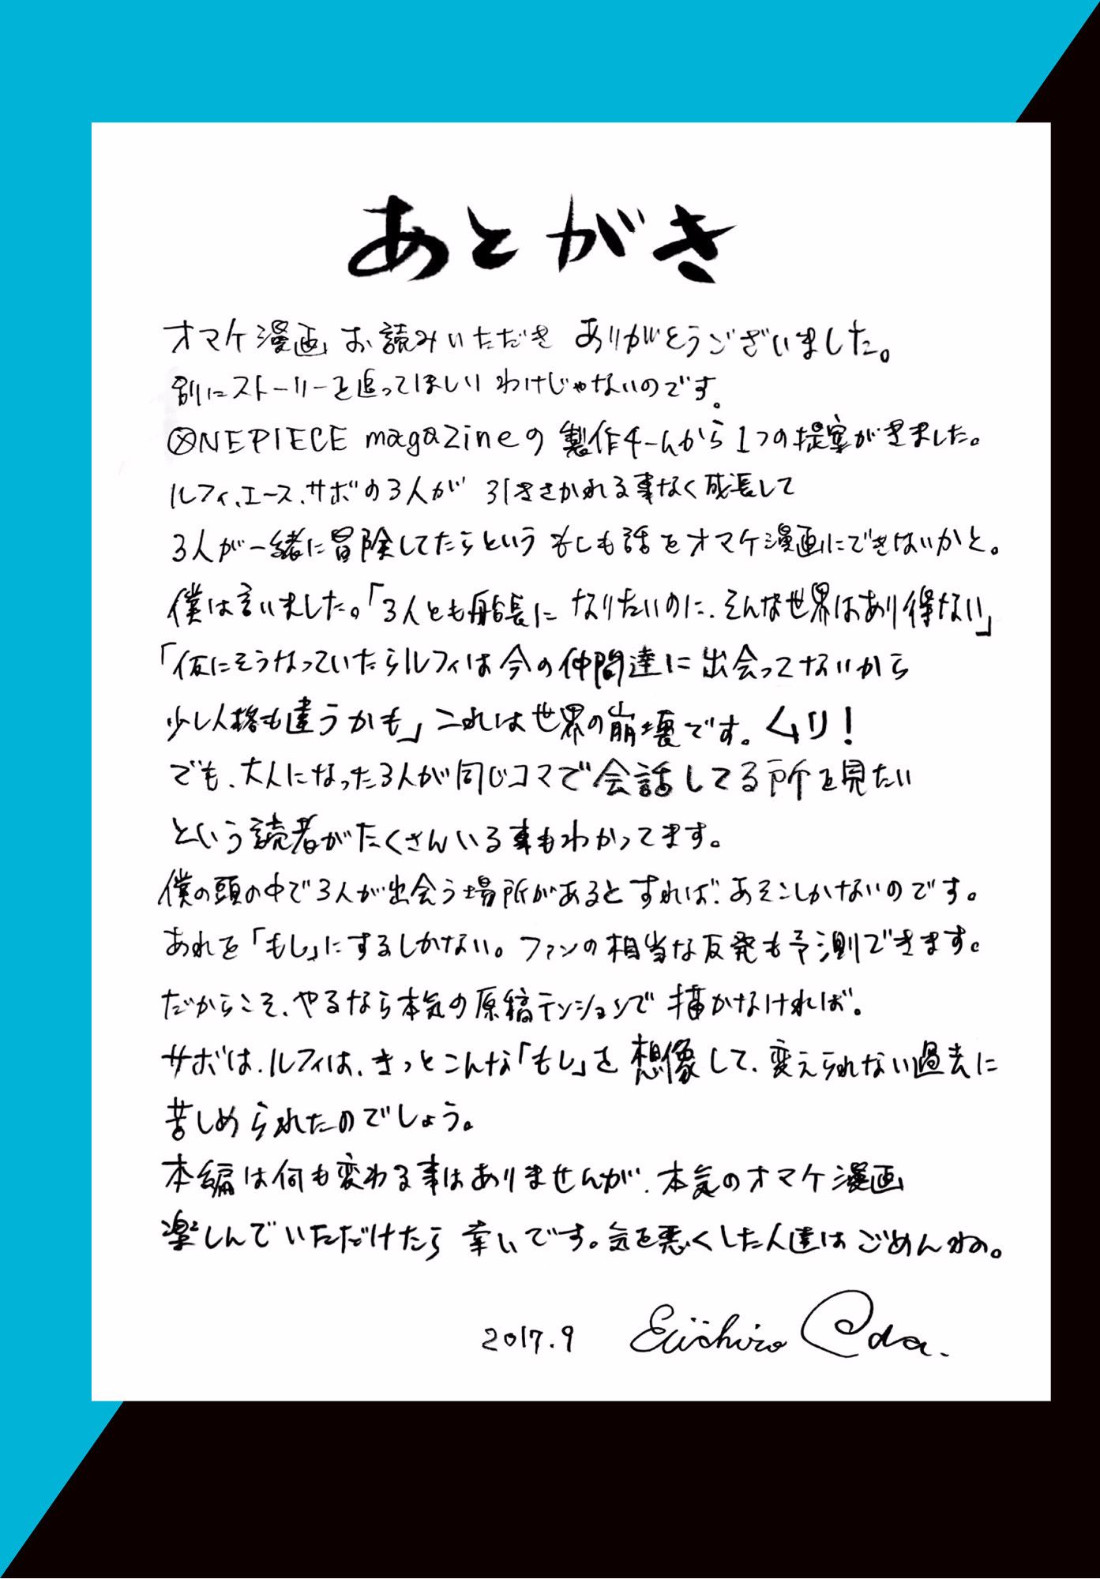 あとがき
オマケ漫画お読みいただき ありがとうございました。
別にストーリーを追ってほしいわけじゃないのです。
ⓍNEPIECE magazineの製作チームから1つの提案がきました。
ルフィ、エース、サボの3人が 引きさかれる事なく成長して
3人が一緒に冒険してたらという もしも話をオマケ漫画にできないかと。
僕は言いました。「3人とも船長に なりたいのに、そんな世界はあり得ない」
「仮にそうなっていたらルフィは今の仲間達に出会ってないから
少し人格も違うかも」これは世界の崩壊です。ムリ!
でも、大人になった3人が同じコマで会話してる所を見たい
という読者がたくさんいる事もわかってます。
僕の頭の中で3人が出会う場所があるとすれば、あそこしかないのです。
あれを「もし」にするしかない。ファンの相当な反発も予測できます。
だからこそ、やるなら本気の原稿テンションで 描かなければ。
サボは、ルフィは、きっとこんな「もし」を 想像して、変えられない過去に
苦しめられたのでしょう。
本編は何も変わる事はありませんが、本気のオマケ漫画
楽しんでいただけたら 幸いです。気を悪くした人達は ごめんね。
2017.9 Eiichiro Oda.